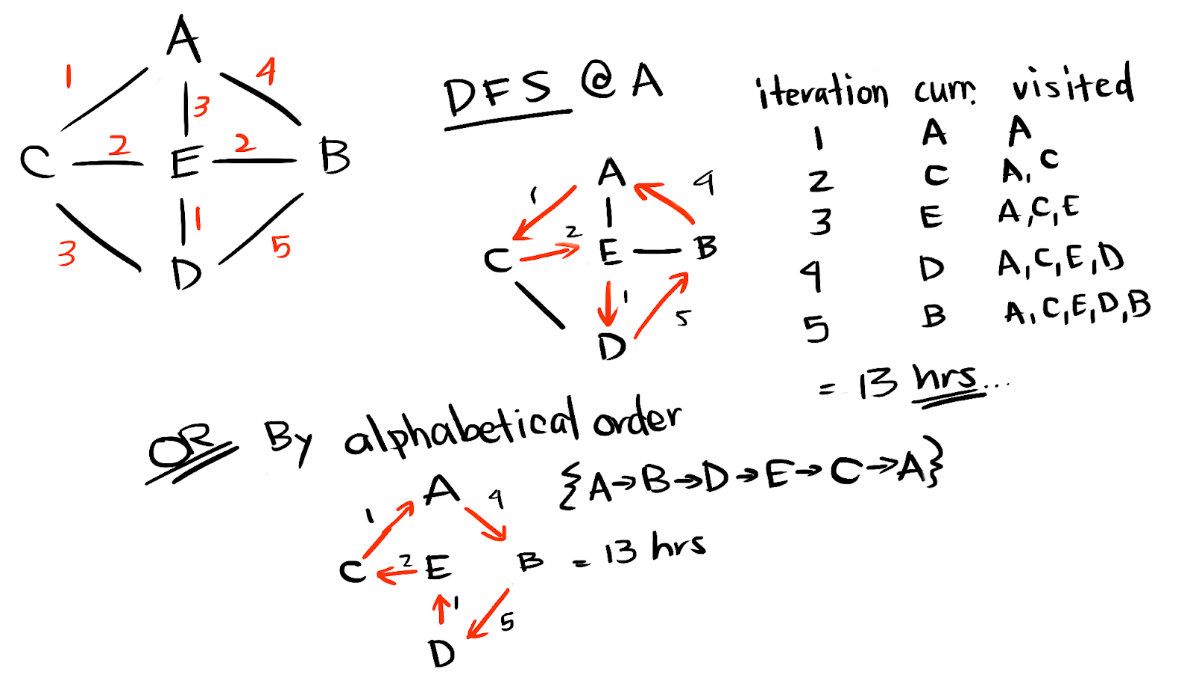 A
1 4
3
C 2 E 2 B
1
3 5
D
DFS @ A
A
1 4
2
C E B
1
5
D
iteration curr. visited
1 A A
2 C A, C
3 E A,C,E
4 D A,C,E,D
5 B A,C,E,D,B
= 13 hrs...
OR By alphabetical order
{A→B→D→E→C→A}
A
1 4
C 2 E B = 13 hrs
1
5
D